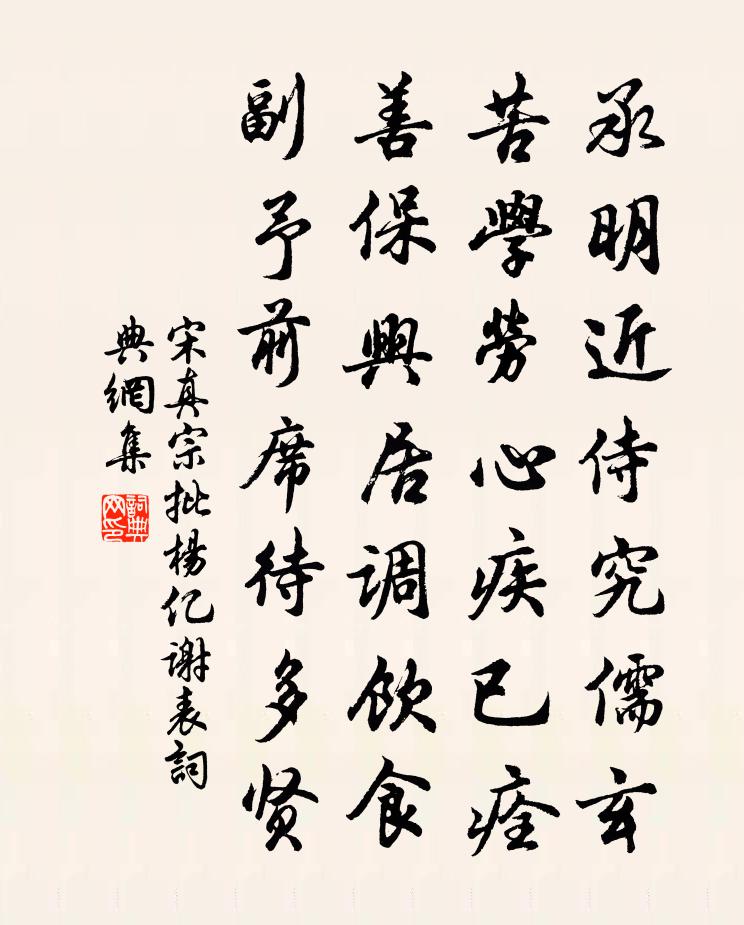 承明近侍究儒玄
苦學勞心疾已痊
善保興居調飲食
副予前席待多贤
宋真宗批楊亿謝表詞
典網集
詞典網印